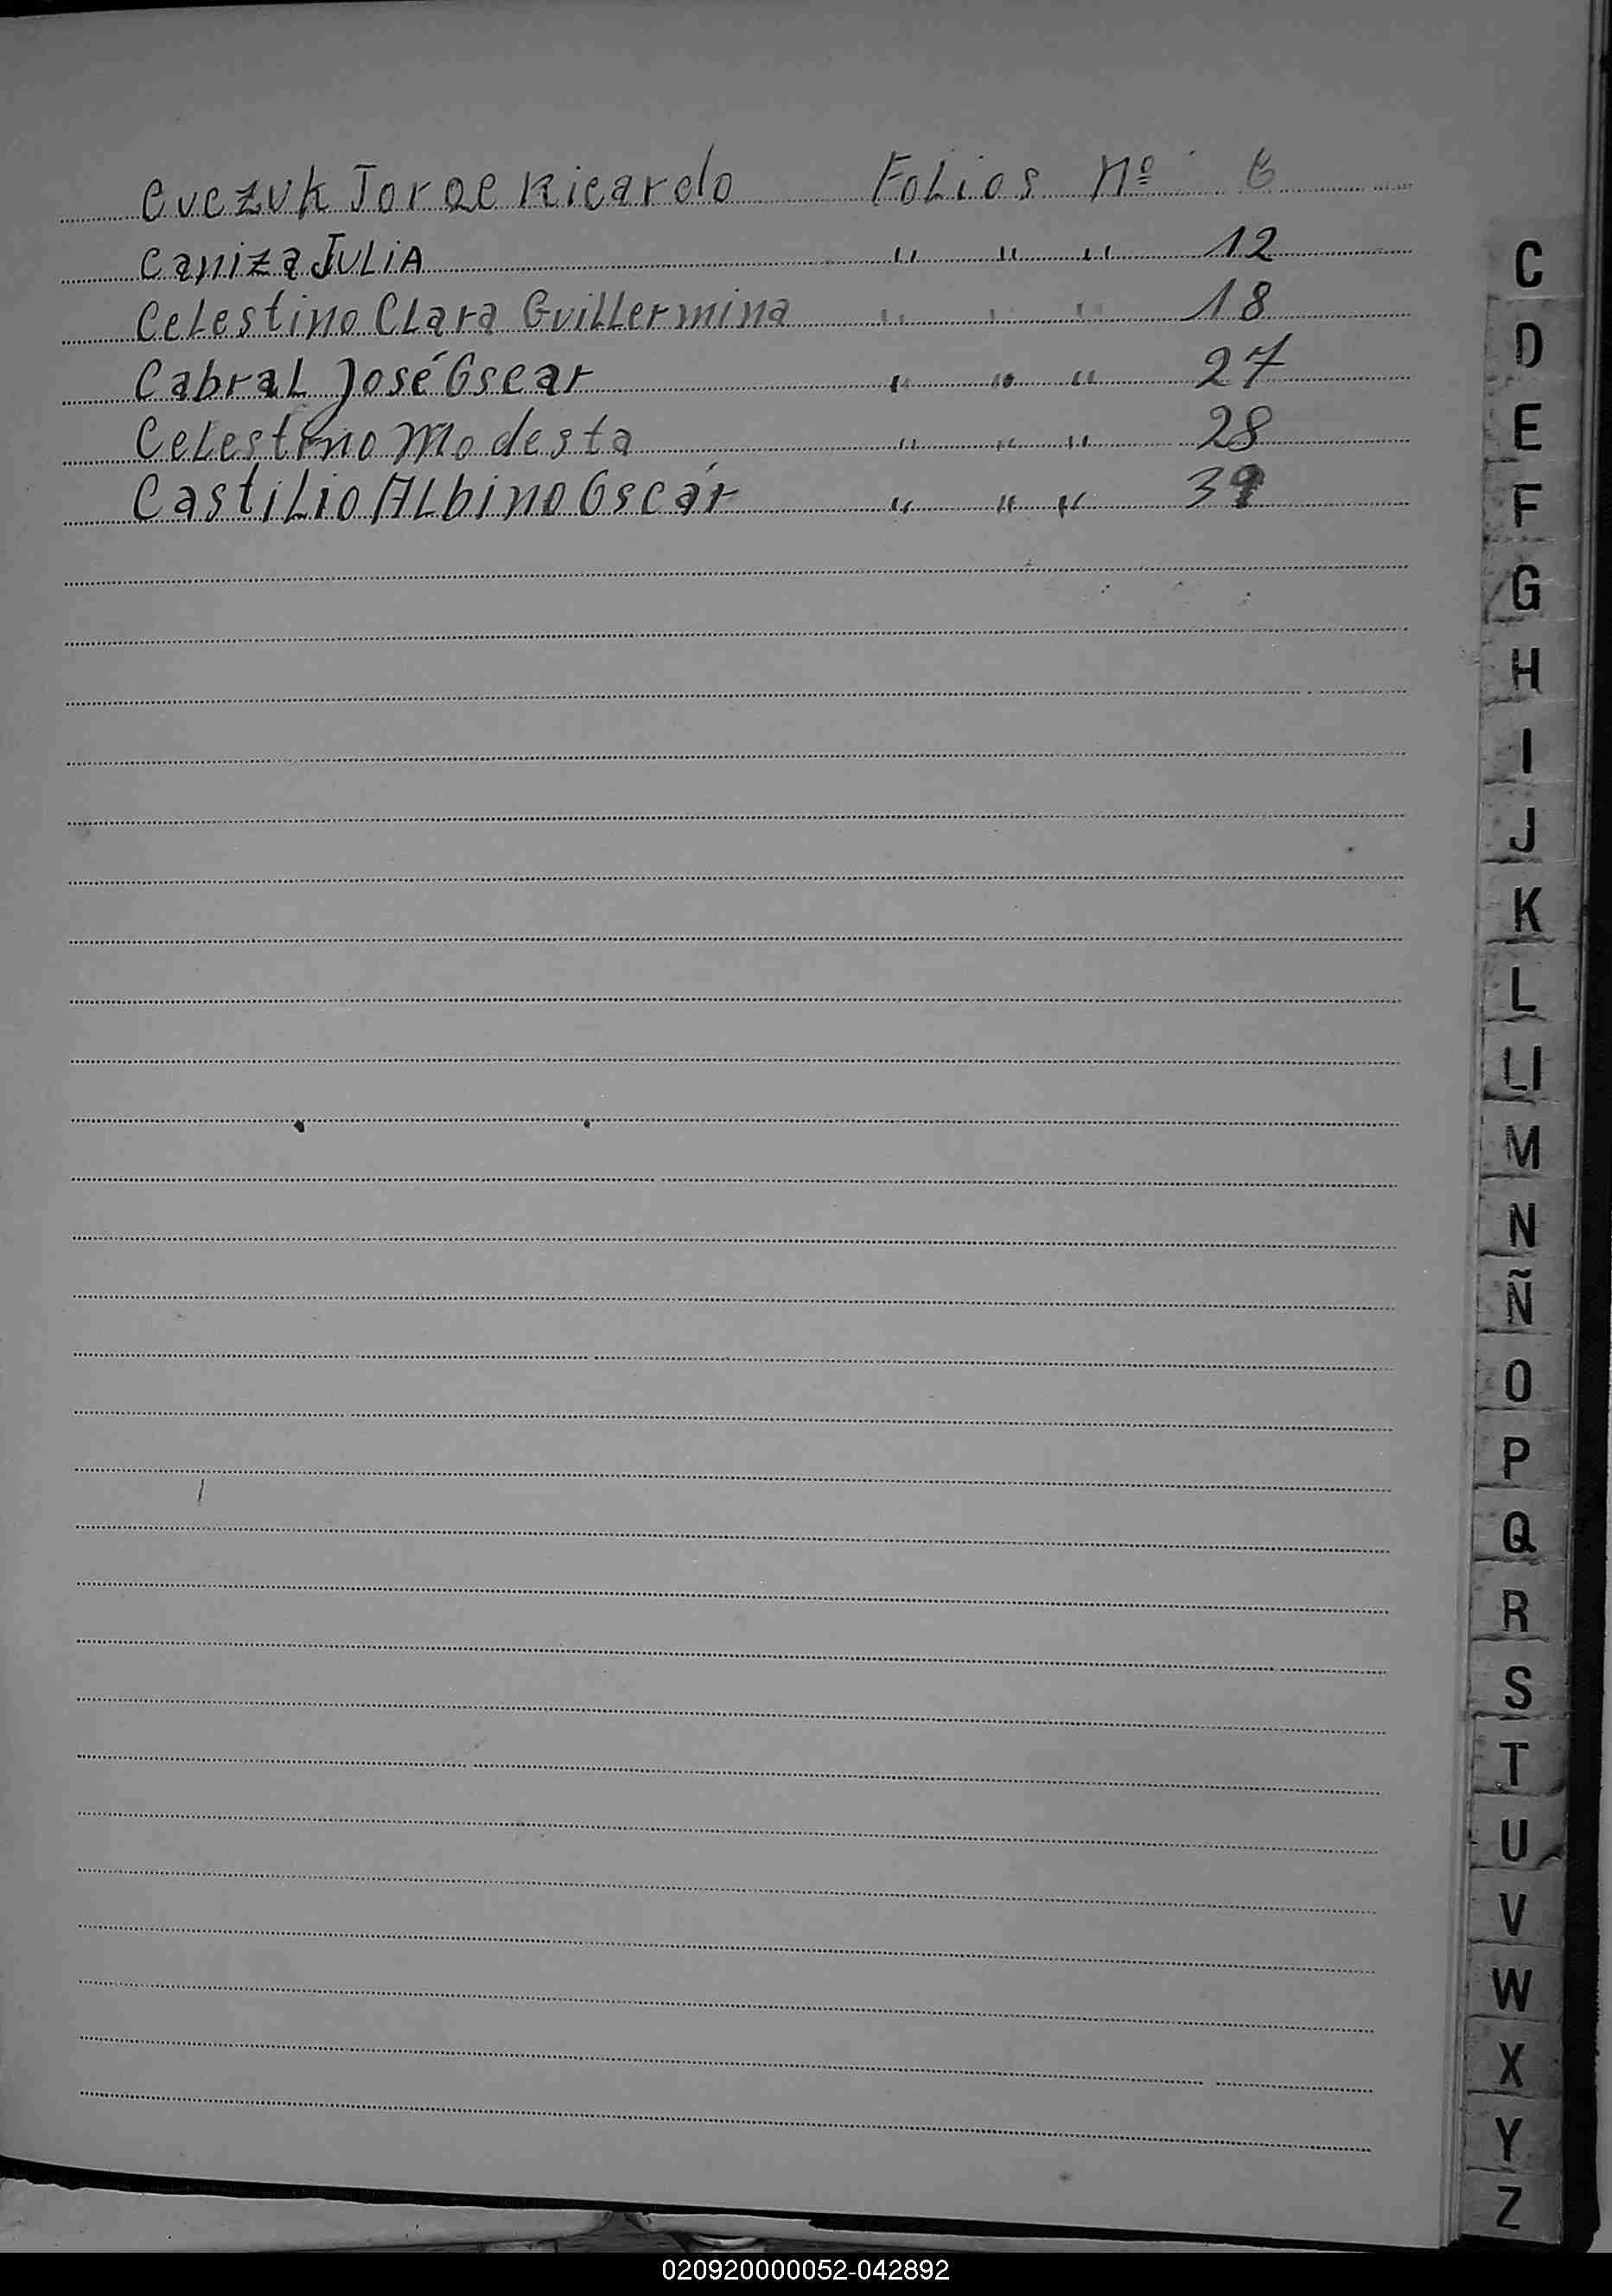 Cuczuk Jorge Ricardo Folios Nº 6
Caniza Julia " " " 12
Celestino Clara Guillermina " " " 18
Cabral José Oscar " " " 27
Celestino Modesta " " " 28
Castilio Albino Oscár " " " 39
C
D
E
F
G
H
I
J
K
L
Ll
M
N
Ñ
O
P
Q
R
S
T
U
V
W
X
Y
Z
020920000052-042892